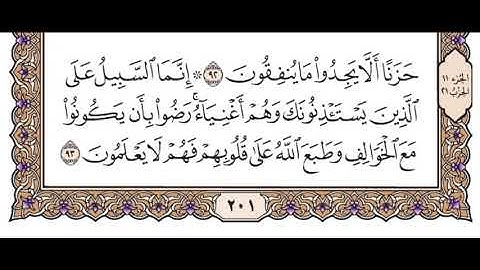 حَزَنًا أَلَّا يَجِدُوا۟ مَا يُنفِقُونَ ٩٢ ۞ إِنَّمَا ٱلسَّبِيلُ عَلَى
ٱلَّذِينَ يَسْتَـْٔذِنُونَكَ وَهُمْ أَغْنِيَآءُ ۚ رَضُوا۟ بِأَن يَكُونُوا۟
مَعَ ٱلْخَوَالِفِ وَطَبَعَ ٱللَّهُ عَلَىٰ قُلُوبِهِمْ فَهُمْ لَا يَعْلَمُونَ ٩٣
الجزء ١١
الحزب ٢١
٢٠١